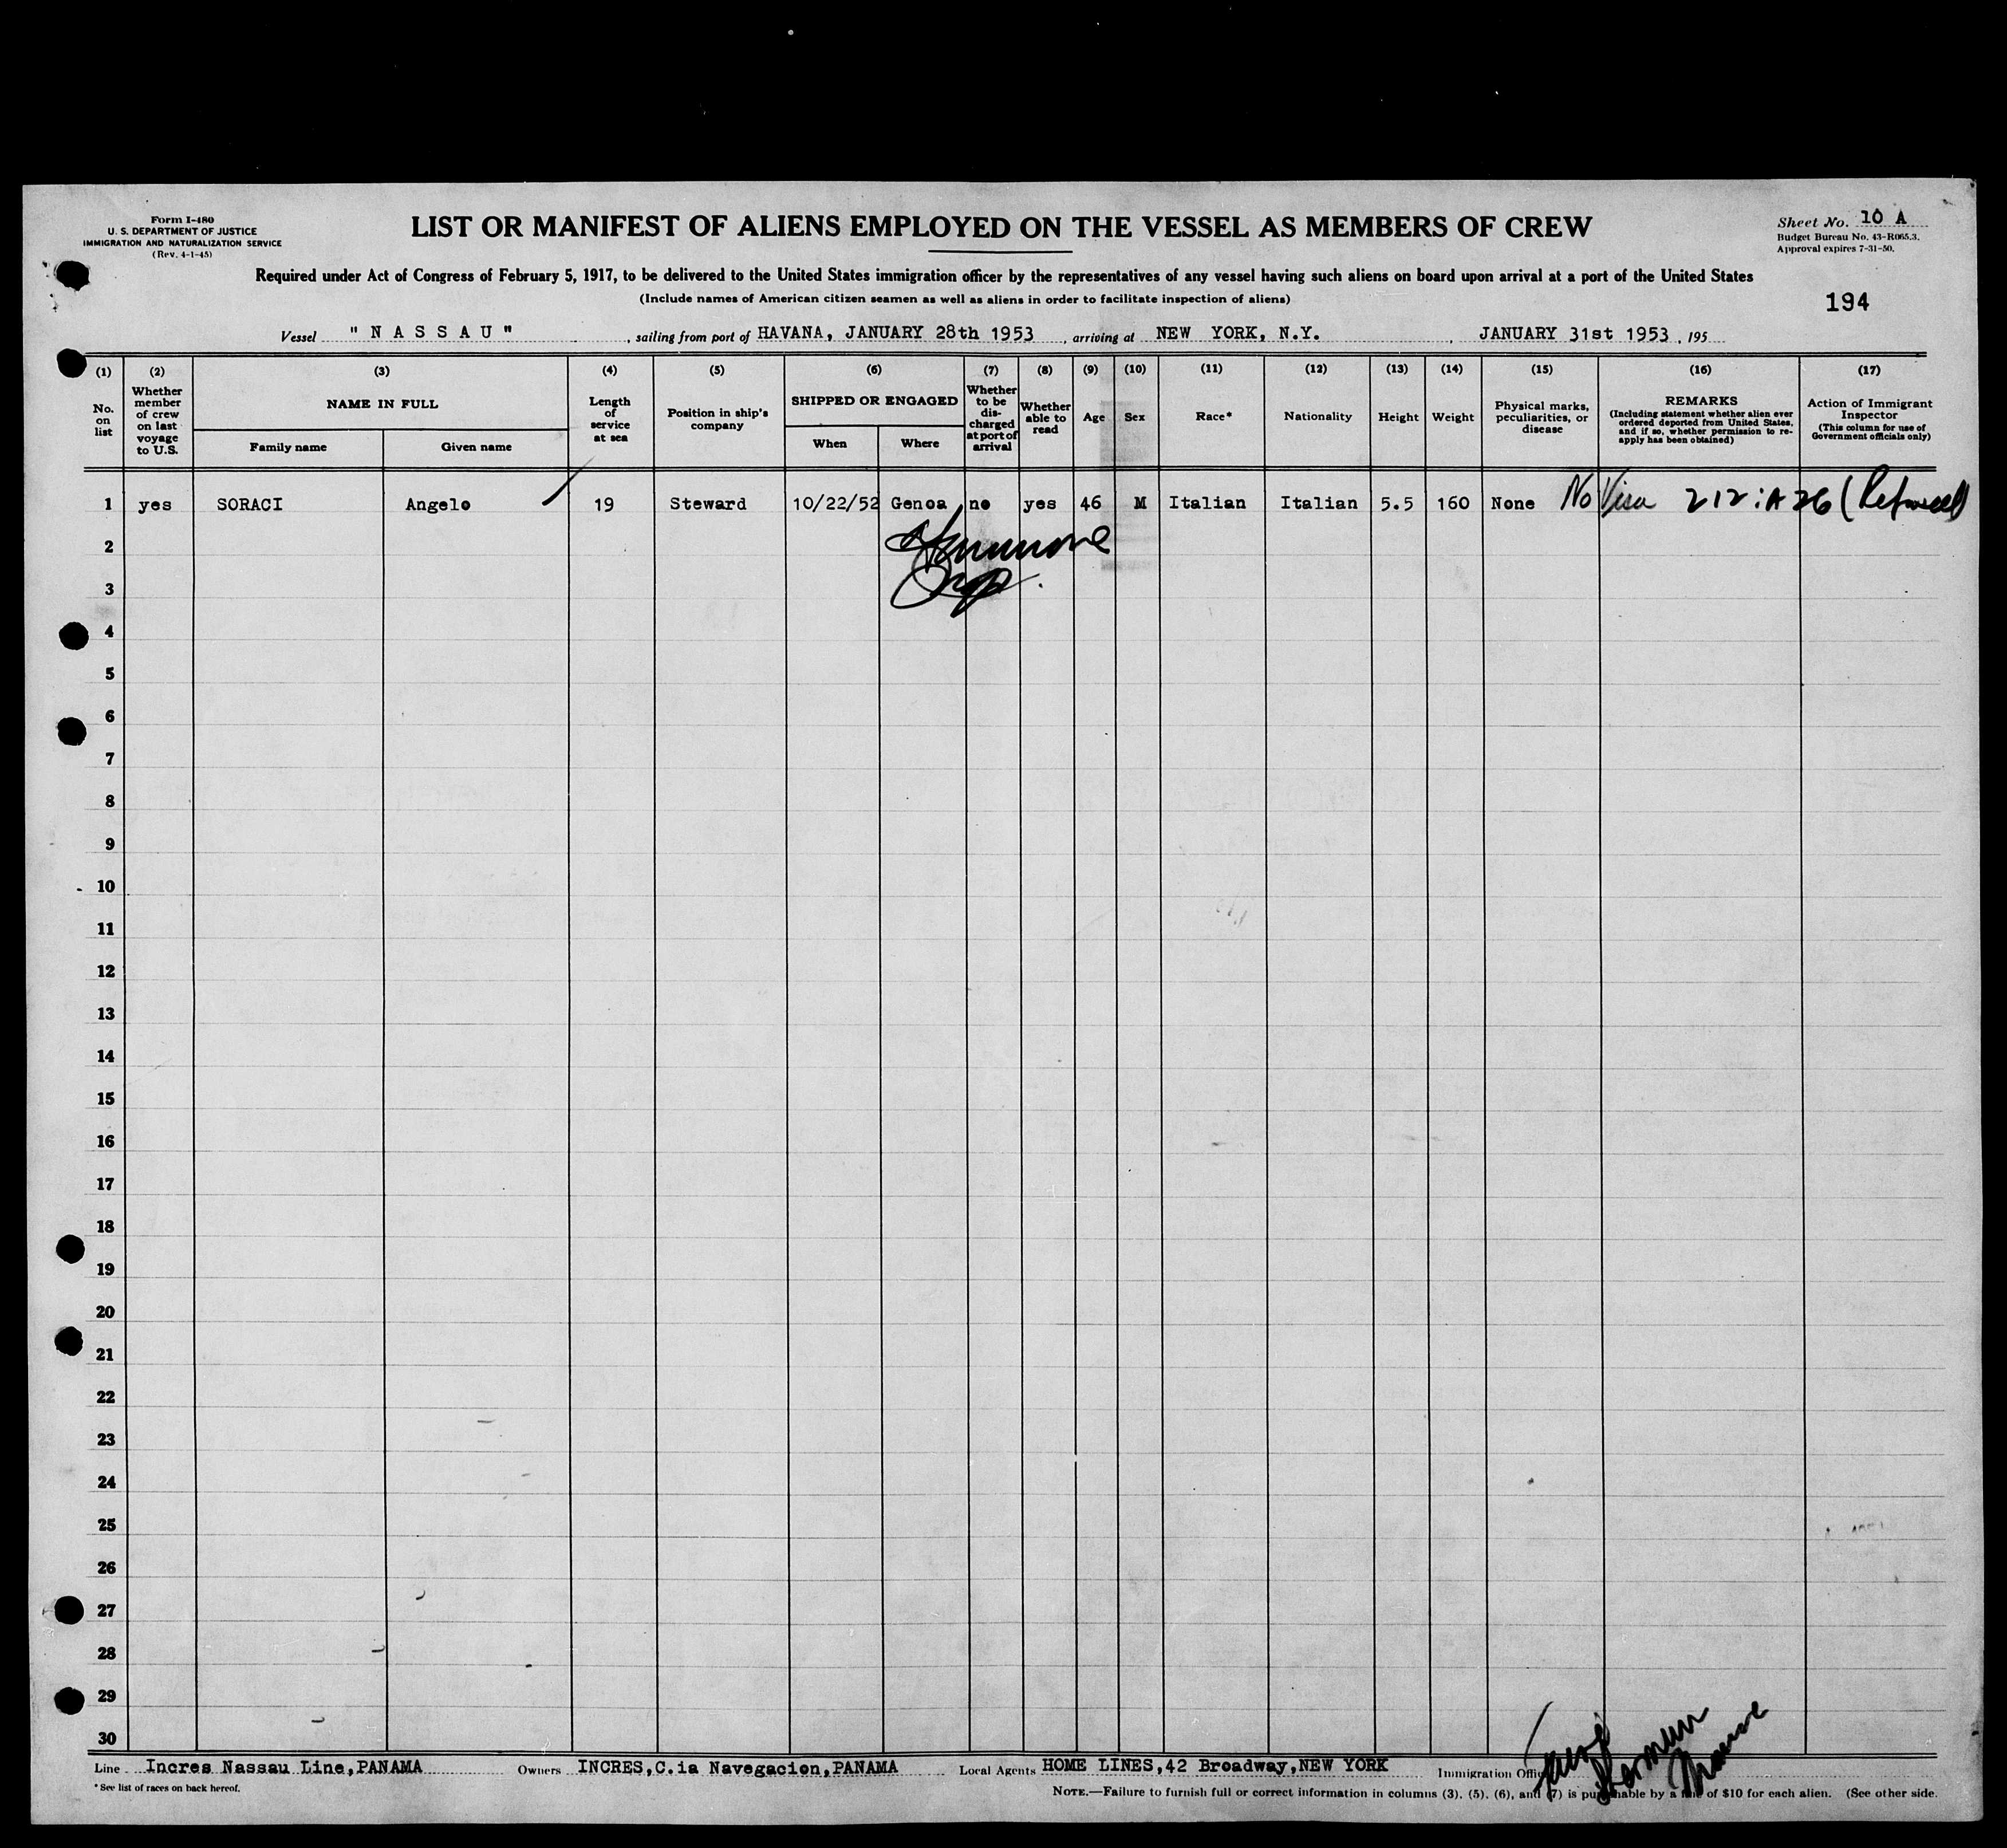 Form I-480
U. S. DEPARTMENT OF JUSTICE
IMMIGRATION AND NATURALIZATION SERVICE
(Rev. 4-1-45)
LIST OR MANIFEST OF ALIENS EMPLOYED ON THE VESSEL AS MEMBERS OF CREW
Sheet No. 10 A
Budget Bureau No. 43-R065.3.
Approval expires 7-31-50.
Required under Act of Congress of February 5, 1917, to be delivered to the United States immigration officer by the representatives of any vessel having such aliens on board upon arrival at a port of the United States
(Include names of American citizen seamen as well as aliens in order to facilitate inspection of aliens)
194
Vessel " N A S S A U " , sailing from port of HAVANA, JANUARY 28th 1953 , arriving at NEW YORK, N.Y. , JANUARY 31st 1953 , 195
(1) No. on list
(2) Whether member of crew on last voyage to U.S.
(3) NAME IN FULL
Family name
Given name
(4) Length of service at sea
(5) Position in ship's company
(6) SHIPPED OR ENGAGED
When
Where
(7) Whether to be discharged at port of arrival
(8) Whether able to read
(9) Age
(10) Sex
(11) Race*
(12) Nationality
(13) Height
(14) Weight
(15) Physical marks, peculiarities, or disease
(16) REMARKS
(Including statement whether alien ever ordered deported from United States, and if so, whether permission to re-apply has been obtained)
(17) Action of Immigrant Inspector
(This column for use of Government officials only)
1 yes SORACI Angelo 19 Steward 10/22/52 Genoa no yes 46 M Italian Italian 5.5 160 None No Visa 212:A 26 (Refused)
2
3
4
5
6
7
8
9
10
11
12
13
14
15
16
17
18
19
20
21
22
23
24
25
26
27
28
29
30
Line Incres Nassau Line,PANAMA Owners INCRES,C.ia Navegacion,PANAMA Local Agents HOME LINES,42 Broadway,NEW YORK Immigration
* See list of races on back hereof.
NOTE.—Failure to furnish full or correct information in columns (3), (5), (6), and (7) is punishable by a fine of $10 for each alien. (See other side.